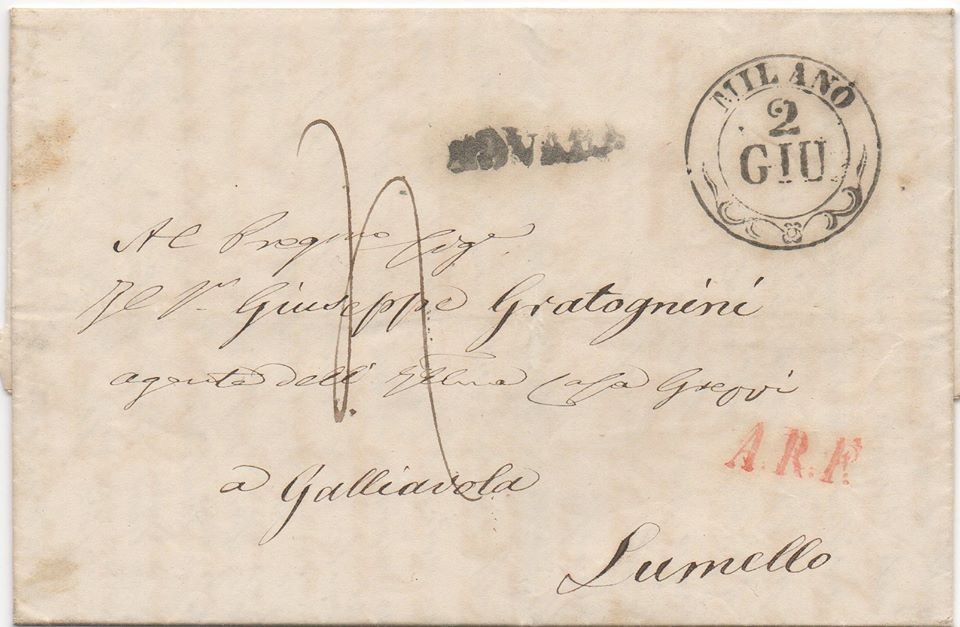 MILANO
2
GIU
NOVARA
Al Pregmo Sigr
Il Sr Giuseppe Gratognini
agente dell' Casa Greppi
a Galliavola
A.R.F.
Lumello